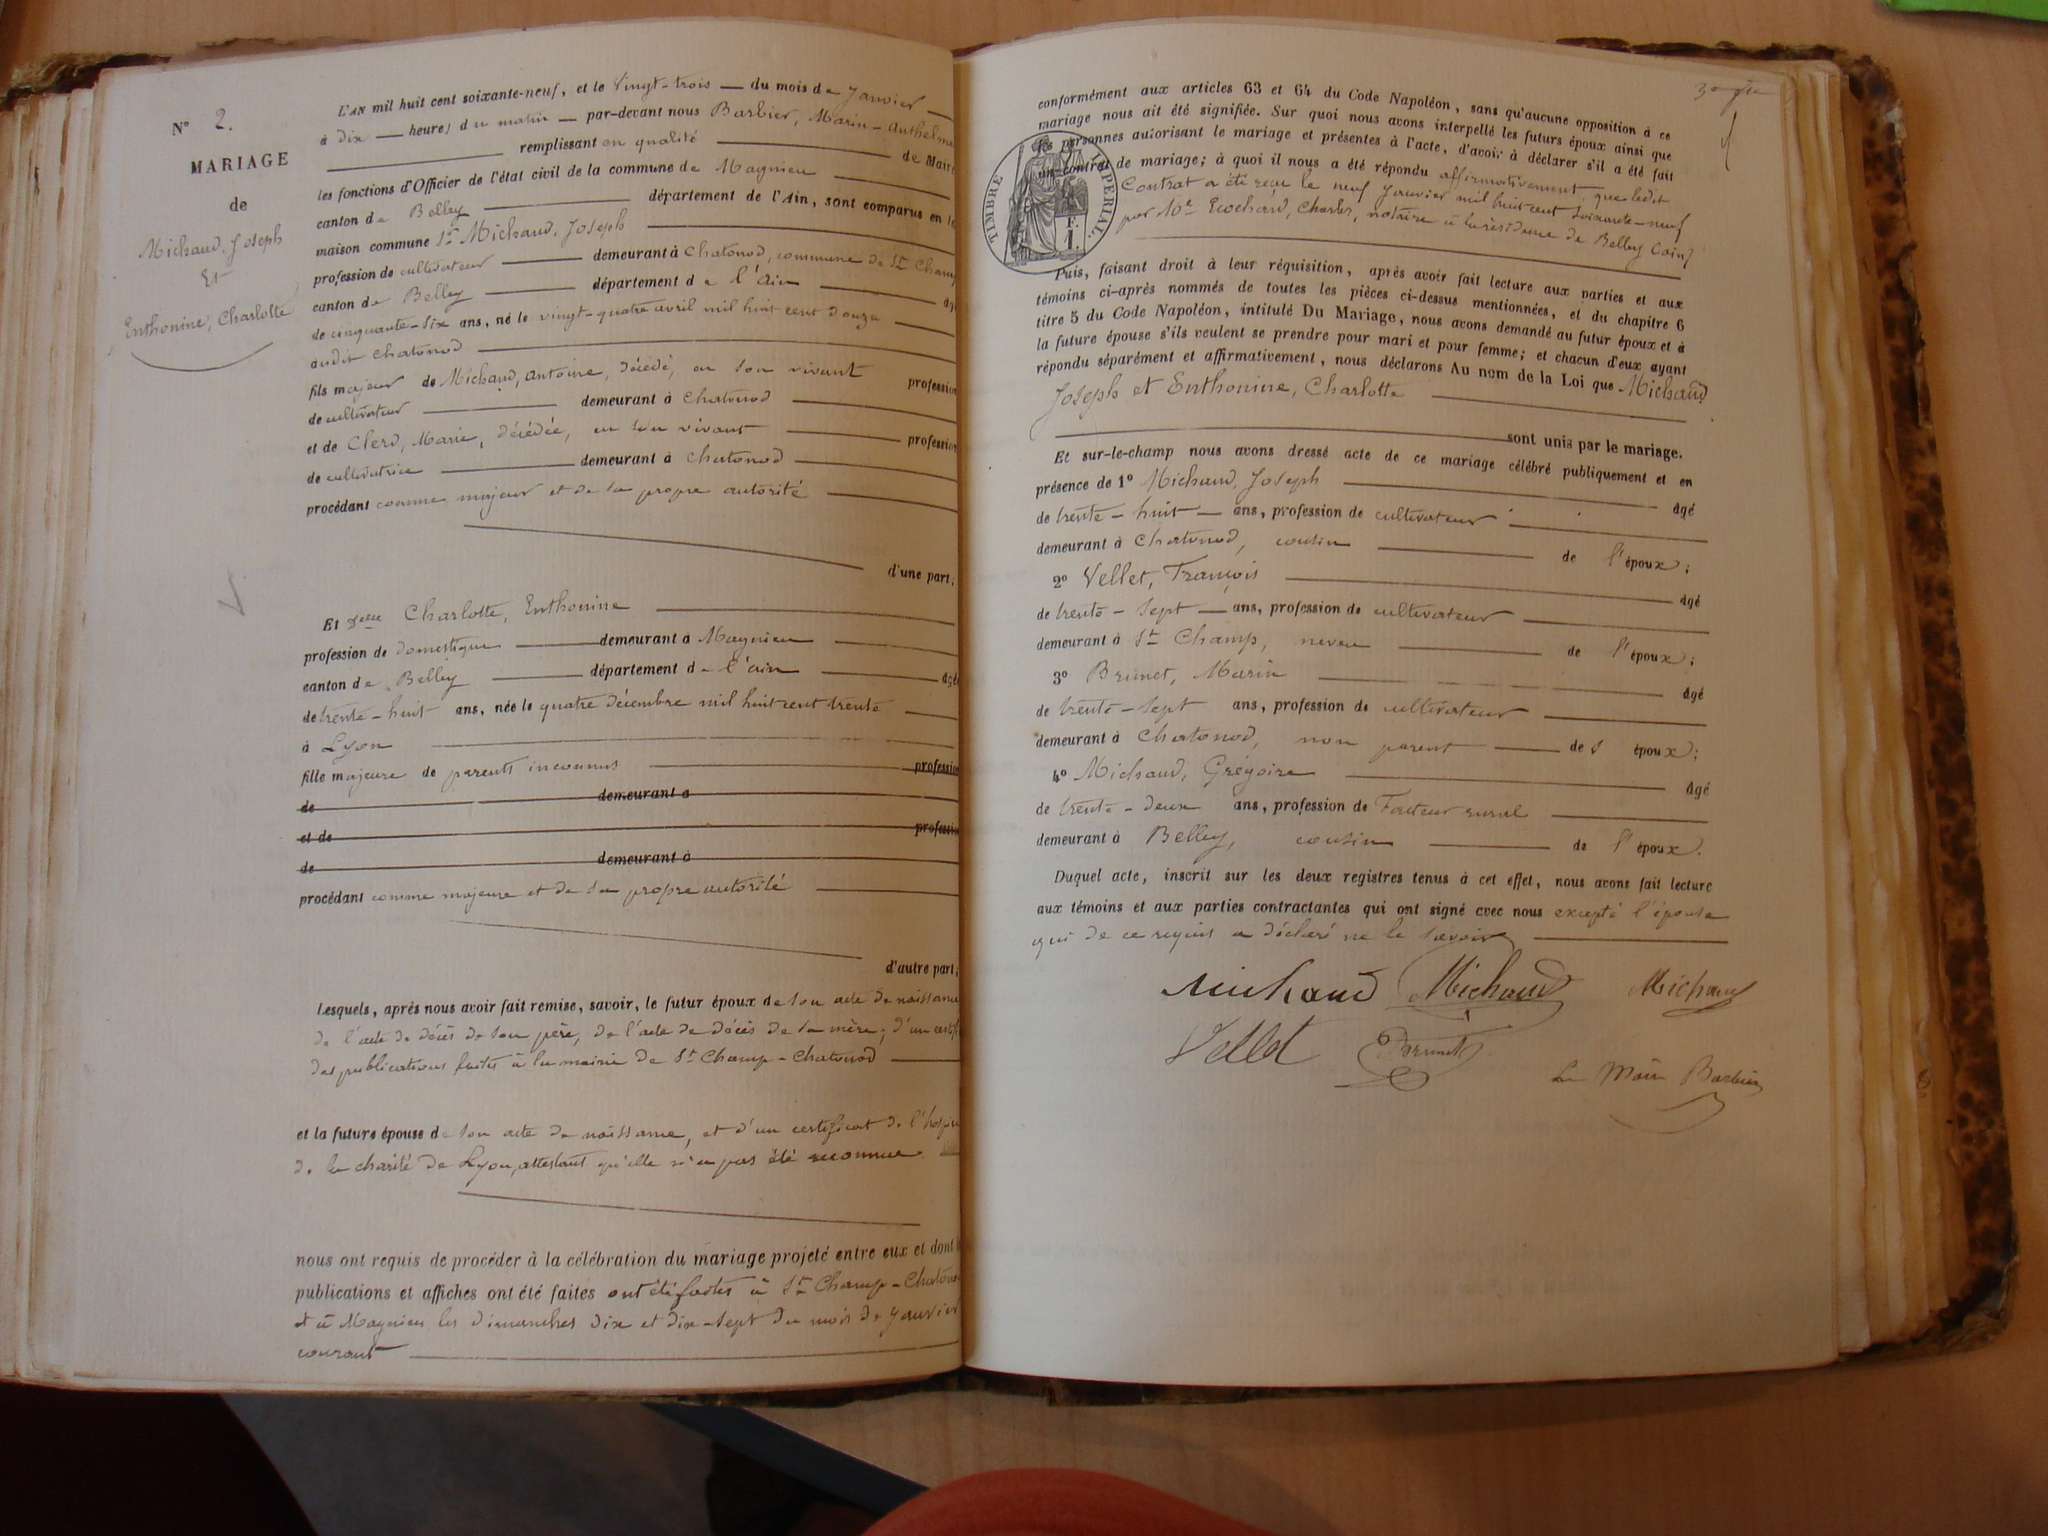 N° 2.
MARIAGE
de
Michaud, Joseph
Et
Enthonine, Charlotte
L'AN mil huit cent soixante-neuf, et le vingt-trois du mois de Janvier
à dix heures du matin par-devant nous Barbier, Marin-Anthelme
remplissant en qualité de Maire
les fonctions d'Officier de l'état civil de la commune de Magnieu
canton de Belley département de l'Ain, sont comparus en la
maison commune Sr Michaud, Joseph
profession de cultivateur demeurant à Chatonod, commune de St Champ
canton de Belley département de l'Ain âgé
de cinquante-six ans, né le vingt-quatre avril mil huit cent douze
audit Chatonod
fils majeur de Michaud, Antoine, décédé, en son vivant profession
de cultivateur demeurant à Chatonod
et de Clerd, Marie, décédée, en son vivant profession
de cultivatrice demeurant à Chatonod
procédant comme majeur et de sa propre autorité
d'une part;
Et Delle Charlotte, Enthonine
profession de domestique demeurant à Magnieu
canton de Belley département de l'ain âgé
de trente-huit ans, née le quatre décembre mil huit cent trente
à Lyon
fille majeure de parents inconnus profession
de demeurant à
et de profession
de demeurant à
procédant comme majeure et de sa propre autorité
d'autre part;
Lesquels, après nous avoir fait remise, savoir, le futur époux de son acte de naissance
de l'acte de décès de son père, de l'acte de décès de sa mère; d'un certif
des publications faites à la mairie de St Champ-Chatonod
et la future épouse de son acte de naissance, et d'un certificat de l'hospice
de la charité de Lyon, attestant qu'elle n'a pas été reconnue
nous ont requis de procéder à la célébration du mariage projeté entre eux et dont
publications et affiches ont été faites ont été faites à St Champ-Chatonod
et à Magnieu les dimanches dix et dix-sept du mois de Janvier
courant
conformément aux articles 63 et 64 du Code Napoléon, sans qu'aucune opposition à ce
mariage nous ait été signifiée. Sur quoi nous avons interpellé les futurs époux ainsi que
les personnes autorisant le mariage et présentes à l'acte, d'avoir à déclarer s'il a été fait
un contrat de mariage; à quoi il nous a été répondu affirmativement que ledit
Contrat a été reçu le neuf Janvier mil huit cent soixante-neuf
par Me Ecochard, Charles, notaire à la résidence de Belley (ain)
TIMBRE IMPERIAL
F.
1.
Puis, faisant droit à leur réquisition, après avoir fait lecture aux parties et aux
témoins ci-après nommés de toutes les pièces ci-dessus mentionnées, et du chapitre 6
titre 5 du Code Napoléon, intitulé Du Mariage, nous avons demandé au futur époux et à
la future épouse s'ils veulent se prendre pour mari et pour femme; et chacun d'eux ayant
répondu séparément et affirmativement, nous déclarons Au nom de la Loi que Michaud
Joseph et Enthonine, Charlotte
sont unis par le mariage.
Et sur-le-champ nous avons dressé acte de ce mariage célébré publiquement et en
présence de 1° Michaud, Joseph âgé
de trente-huit ans, profession de cultivateur
demeurant à Chatonod, cousin de l'époux;
2° Vellet, François âgé
de trente-sept ans, profession de cultivateur
demeurant à St Champ, neveu de l'époux;
3° Brunet, Marin âgé
de trente-sept ans, profession de cultivateur
demeurant à Chatonod, non parent des époux;
4° Michaud, Grégoire âgé
de trente-deux ans, profession de Facteur rural
demeurant à Belley, cousin de l'époux.
Duquel acte, inscrit sur les deux registres tenus à cet effet, nous avons fait lecture
aux témoins et aux parties contractantes qui ont signé avec nous excepté l'épouse
qui de ce requis a déclaré ne le savoir
Michaud Michaud Michaud
Vellet Brunet
Le Maire Barbier